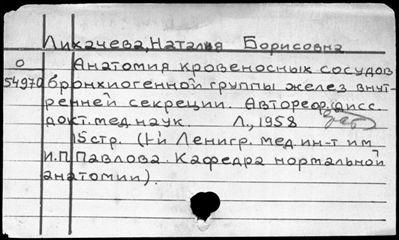 Лихачева, Наталья Борисовна
О Анатомия кровеносных сосудов
54970 бронхиогенной группы желез внут-
ренней секреции. Автореф. дисс.
докт. мед. наук. Л., 1958
15 стр. (1-й Ленигр. мед. ин-т им
И.П. Павлова. Кафедра нормальной
анатомии).